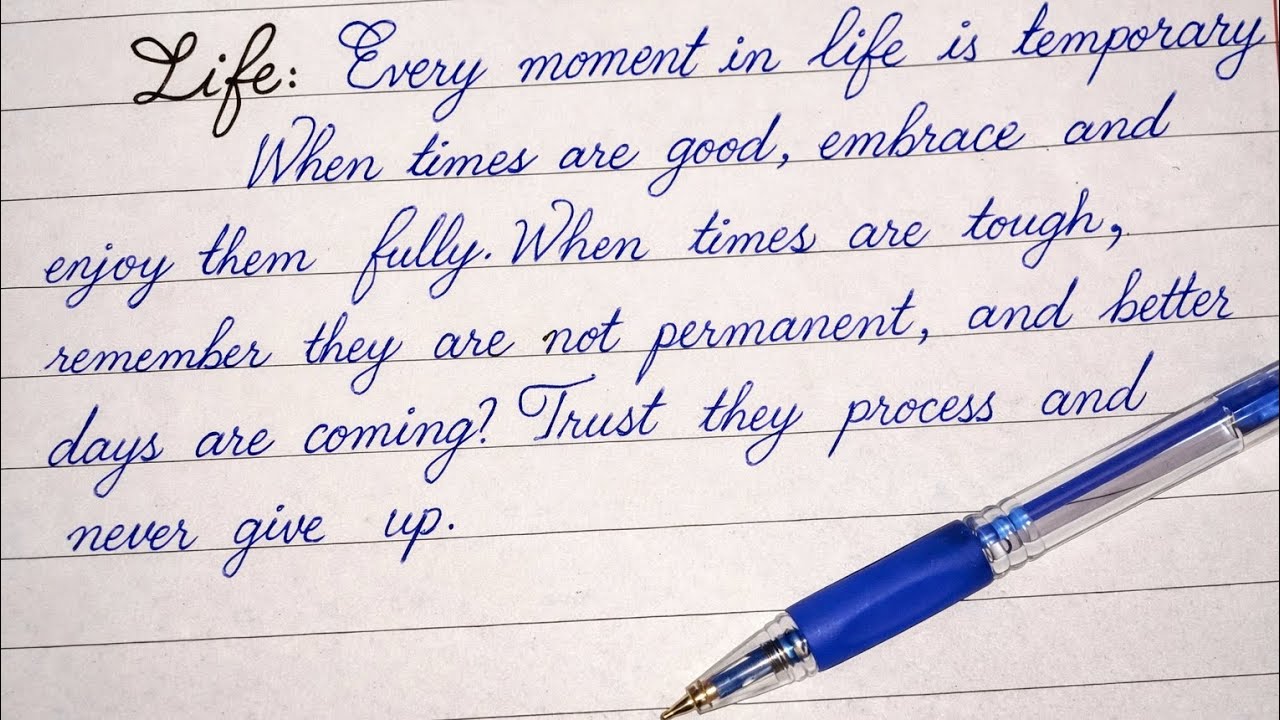 Life: Every moment in life is temporary
When times are good, embrace and
enjoy them fully. When times are tough,
remember they are not permanent, and better
days are coming? Trust they process and
never give up.